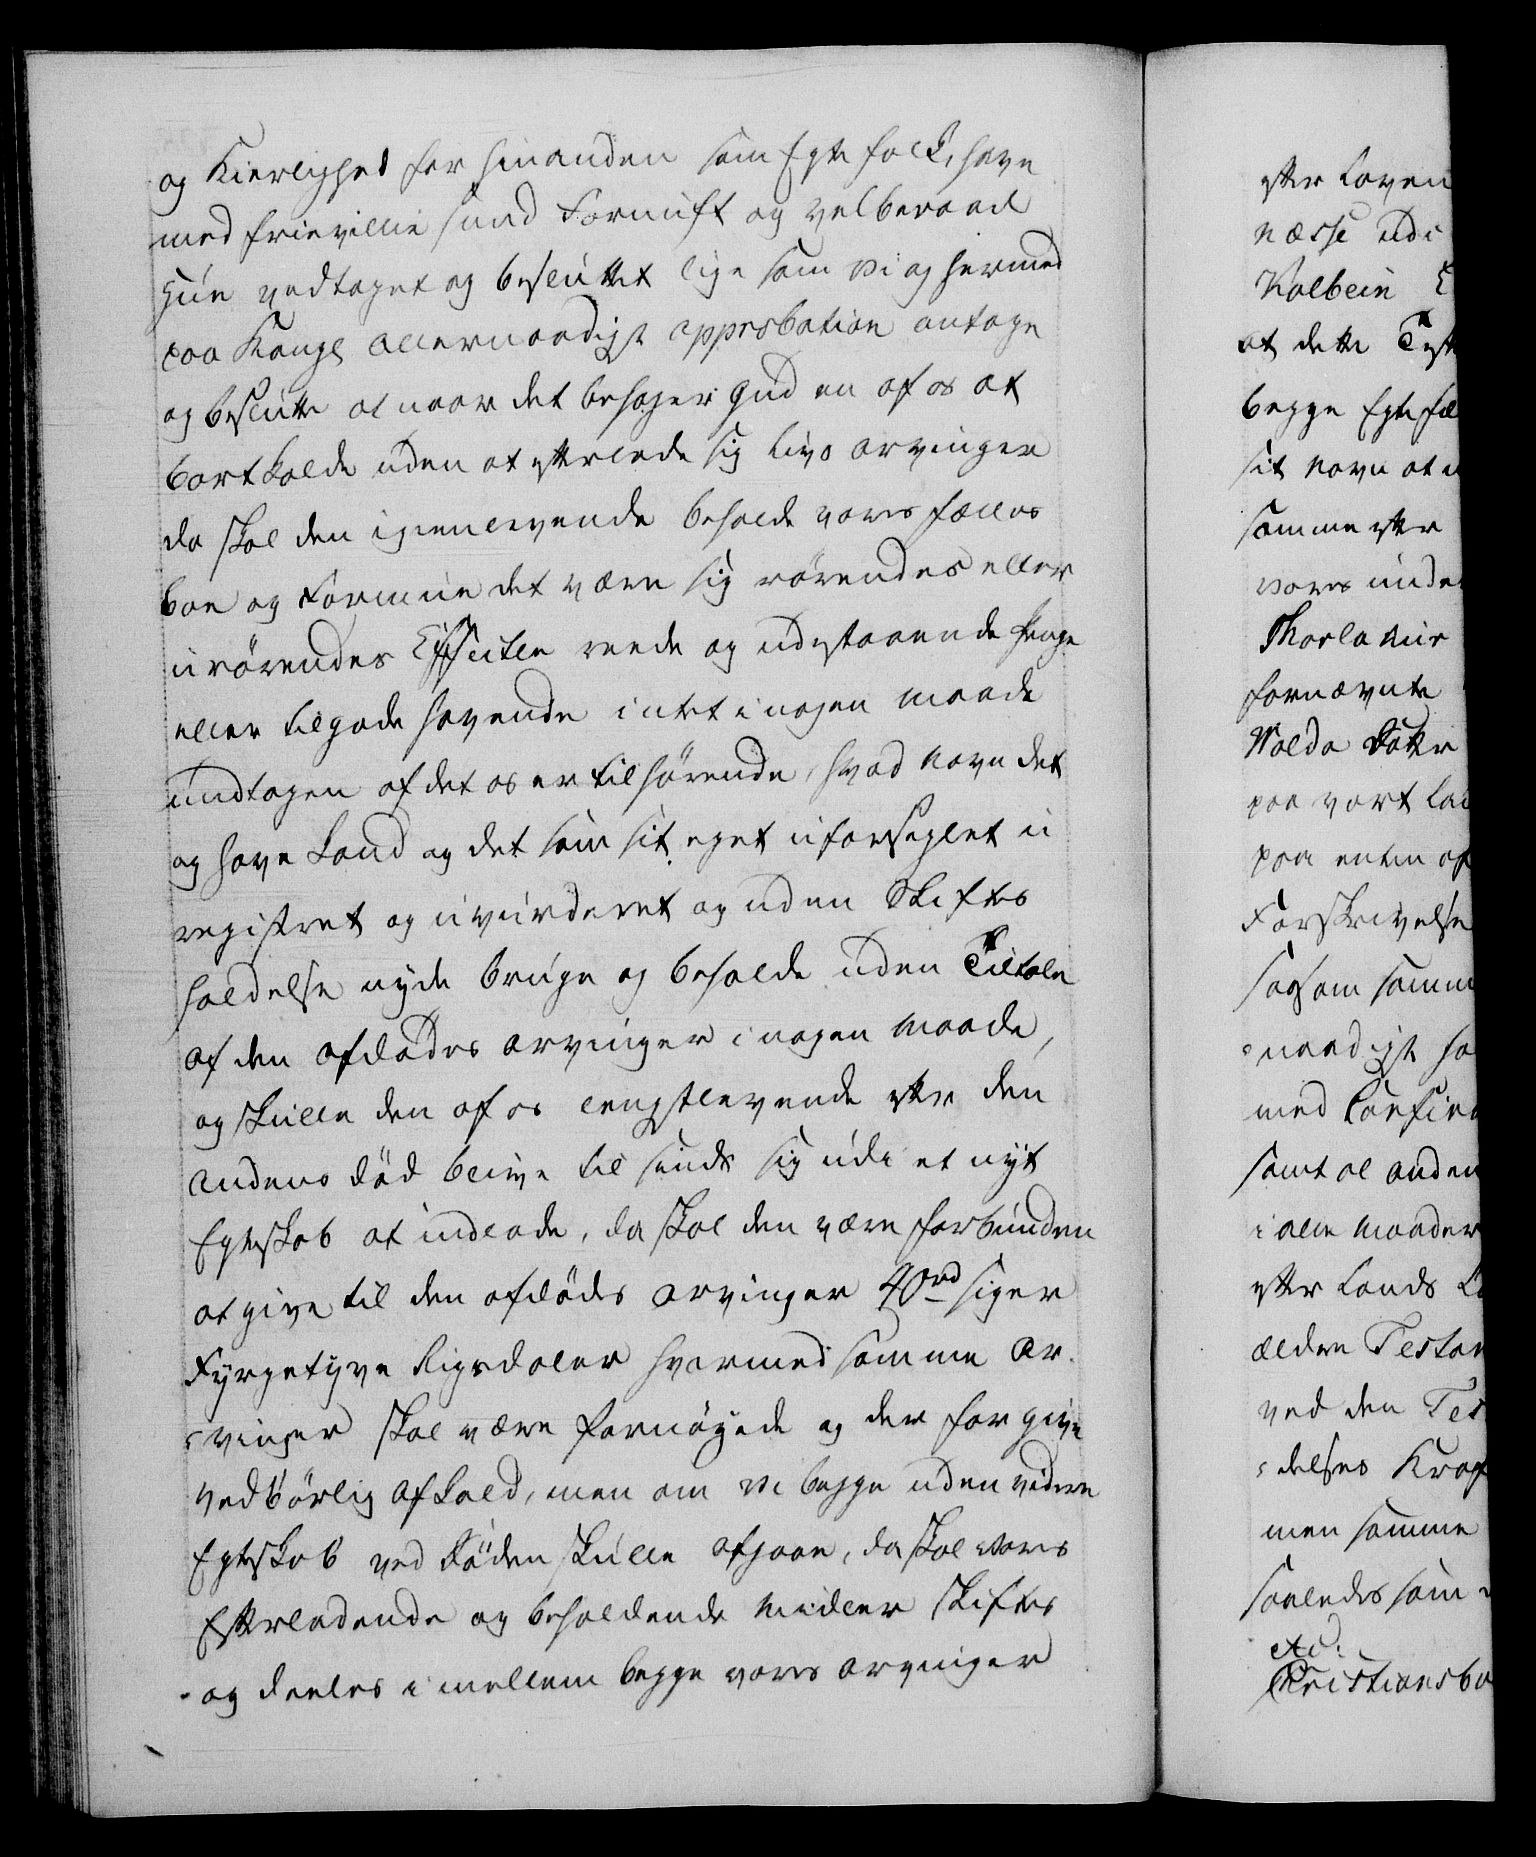 og Kierlighed for hinanden som Egte folk, have
med frievillie sund Fornuft og velberaad
Hue vedtaget og besluttet lige som vi og hermed
paa Kongl allernaadigst approbation antage
og beslutte at naar det behager Gud en af os at
bortkalde uden at efterlade sig livs arvinger
da skal den igienlevende beholde vores fælles
boe og Formue det være sig rörendes eller
urörendes Effecter reede og udestaaende penge
eller tilgode havende intet i nogen maade
undtagen af det os er tilhørende, hvad navn det
og have kand og det som sit eget uforseglet u
registret og uvurderet og uden Skiftes
holdelse nyde bruge og beholde uden Tiltale
af den afdödes arvinger i nogen maade,
og skulle den af os lengstlevende efter den
andens död blive til sinds sig udi et nyt
Egteskab at indlade, da skal den være forbunden
at give til den afdöds arvinger 40rd siger
Fyrgetyve Rigsdaler hvormed samme Ar-
-vinger skal være fornöyede og der for give
vedbörlig afkald, men om vi begge uden videre
Egteskab ved Döden skulle afgaae, da skal vores
Efterladende og beholdende Midler skiftes
og deeles imellem begge vores arvinger
efter Loven
næsse udi
Kolbein E
at dette Test
begge Egtefæ
sit navn at u
samme efter
vores under
Thorlakur
fornævnte
Valda Dotter
paa vort Lan
paa enten af
Forskrivelse
saasom samm
-naadigst ha
med Confirma
samt al anden
i alle maader
efter Lands L
ældre Testam
ved den Tes
-delses Kraf
men samme
saaledes som
etc:
Christiansbo